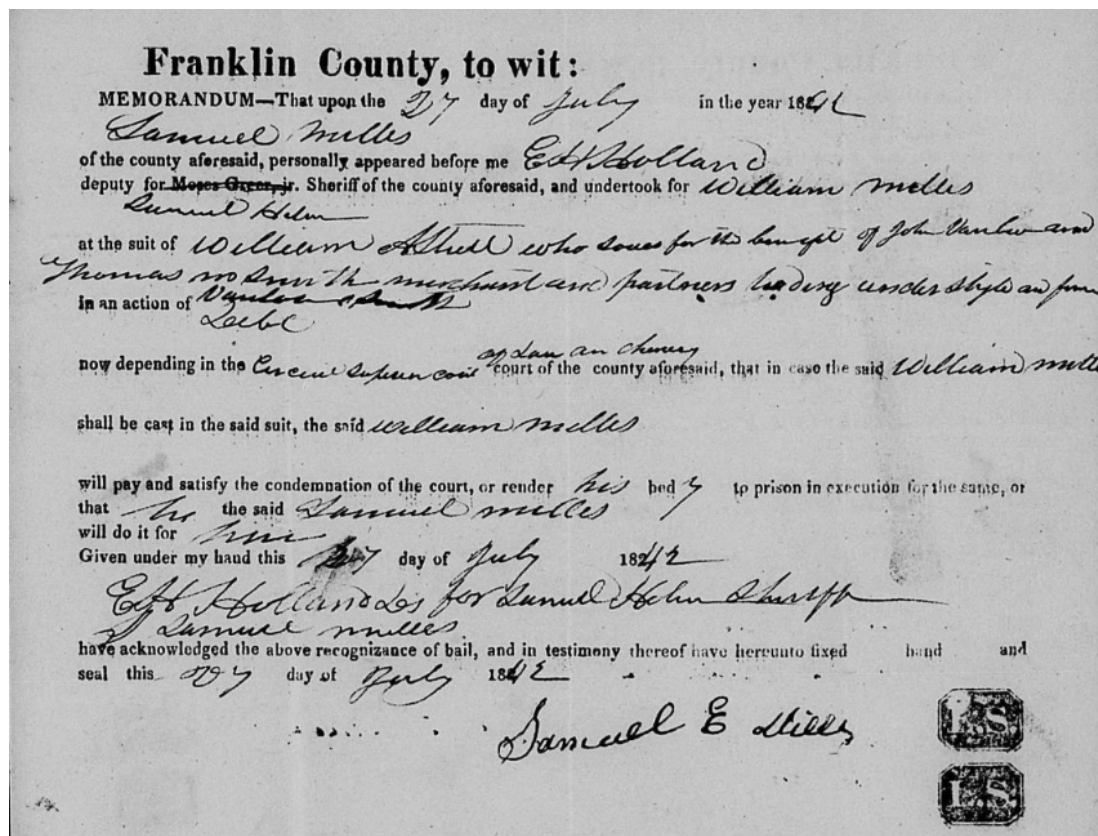 Franklin County, to wit:
MEMORANDUM—That upon the 27 day of July in the year 1842
Samuel Milles
of the county aforesaid, personally appeared before me E H Holland
deputy for Moses Greer, jr. Sheriff of the county aforesaid, and undertook for William Milles
Samuel Helm
at the suit of William who sues for the benefit of John Vanlew and
Thomas M Smith merchant and partners trading under style an firm
in an action of
Debt
of Law an
now depending in the Circuit Superior court of the county aforesaid, that in case the said William Milles
shall be cast in the said suit, the said William Milles
will pay and satisfy the condemnation of the court, or render his body to prison in execution for the same, or
that he the said Samuel Milles
will do it for him
Given under my hand this 27 day of July 1842
E H Holland Ds for Samuel Helm Sheriff
I Samuel Milles
have acknowledged the above recognizance of bail, and in testimony thereof have hereunto fixed hand and
seal this 27 day of July 1842
Samuel E Milles
L S
L S